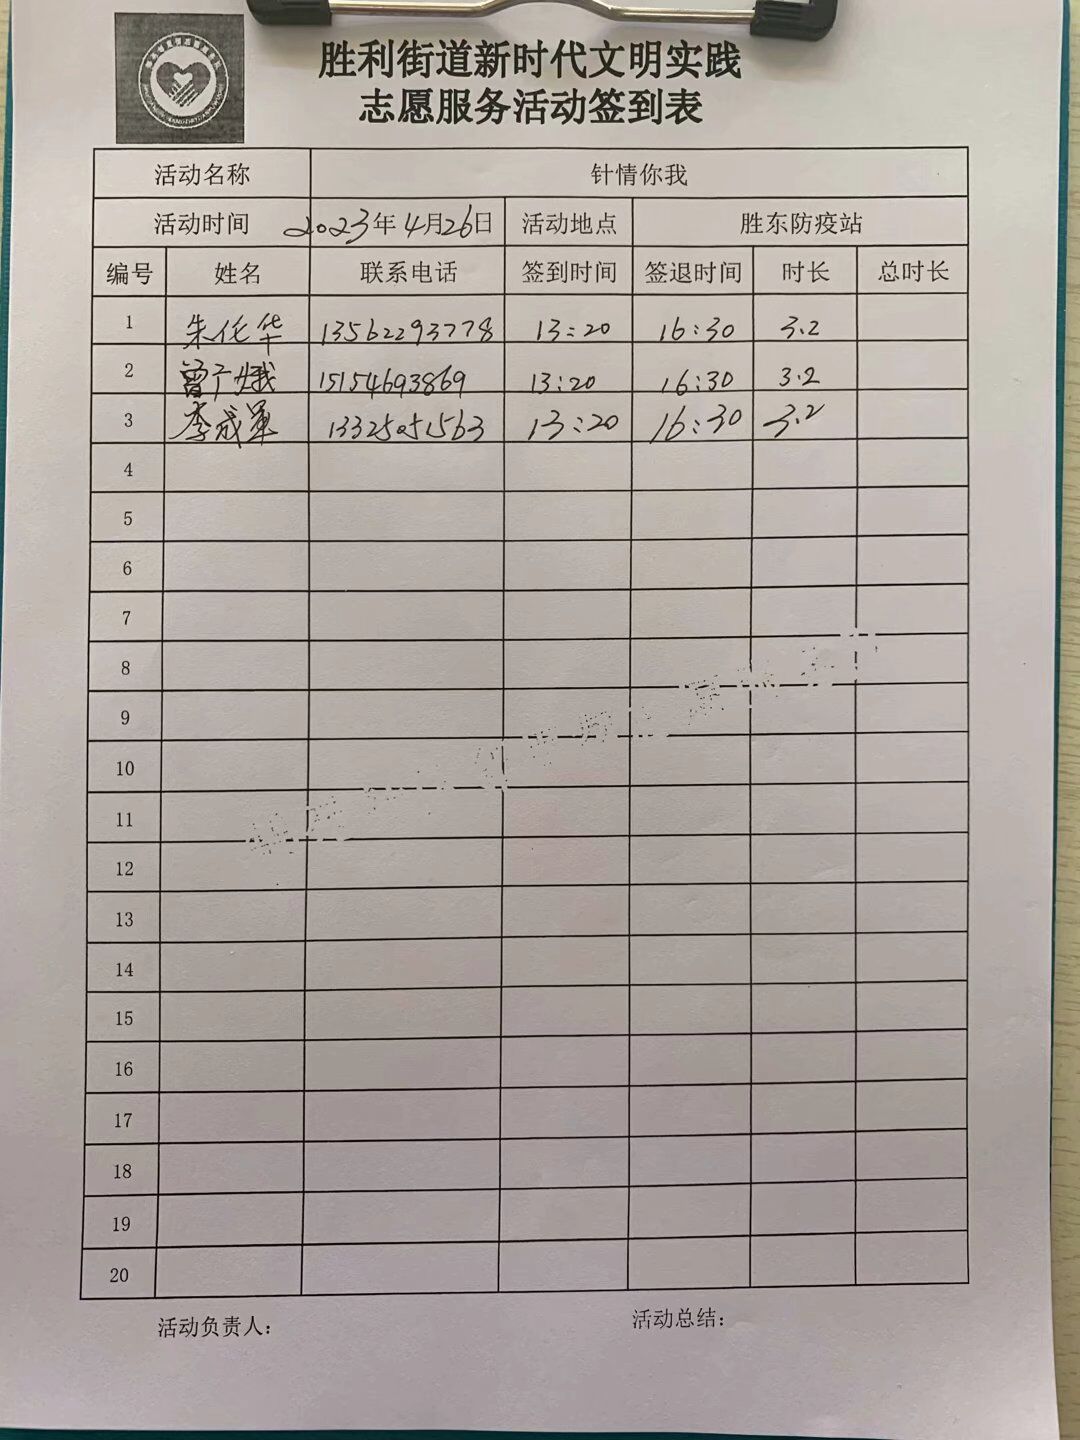 胜利街道新时代文明实践
志愿服务活动签到表
活动名称 针情你我
活动时间 2023年4月26日 活动地点 胜东防疫站
编号 姓名 联系电话 签到时间 签退时间 时长 总时长
1 朱化华 13562293778 13:20 16:30 3.2
2 曾广娥 15154693869 13:20 16:30 3.2
3 李成军 13325051563 13:20 16:30 3.2
4
5
6
7
8
9
10
11
12
13
14
15
16
17
18
19
20
活动负责人: 活动总结: